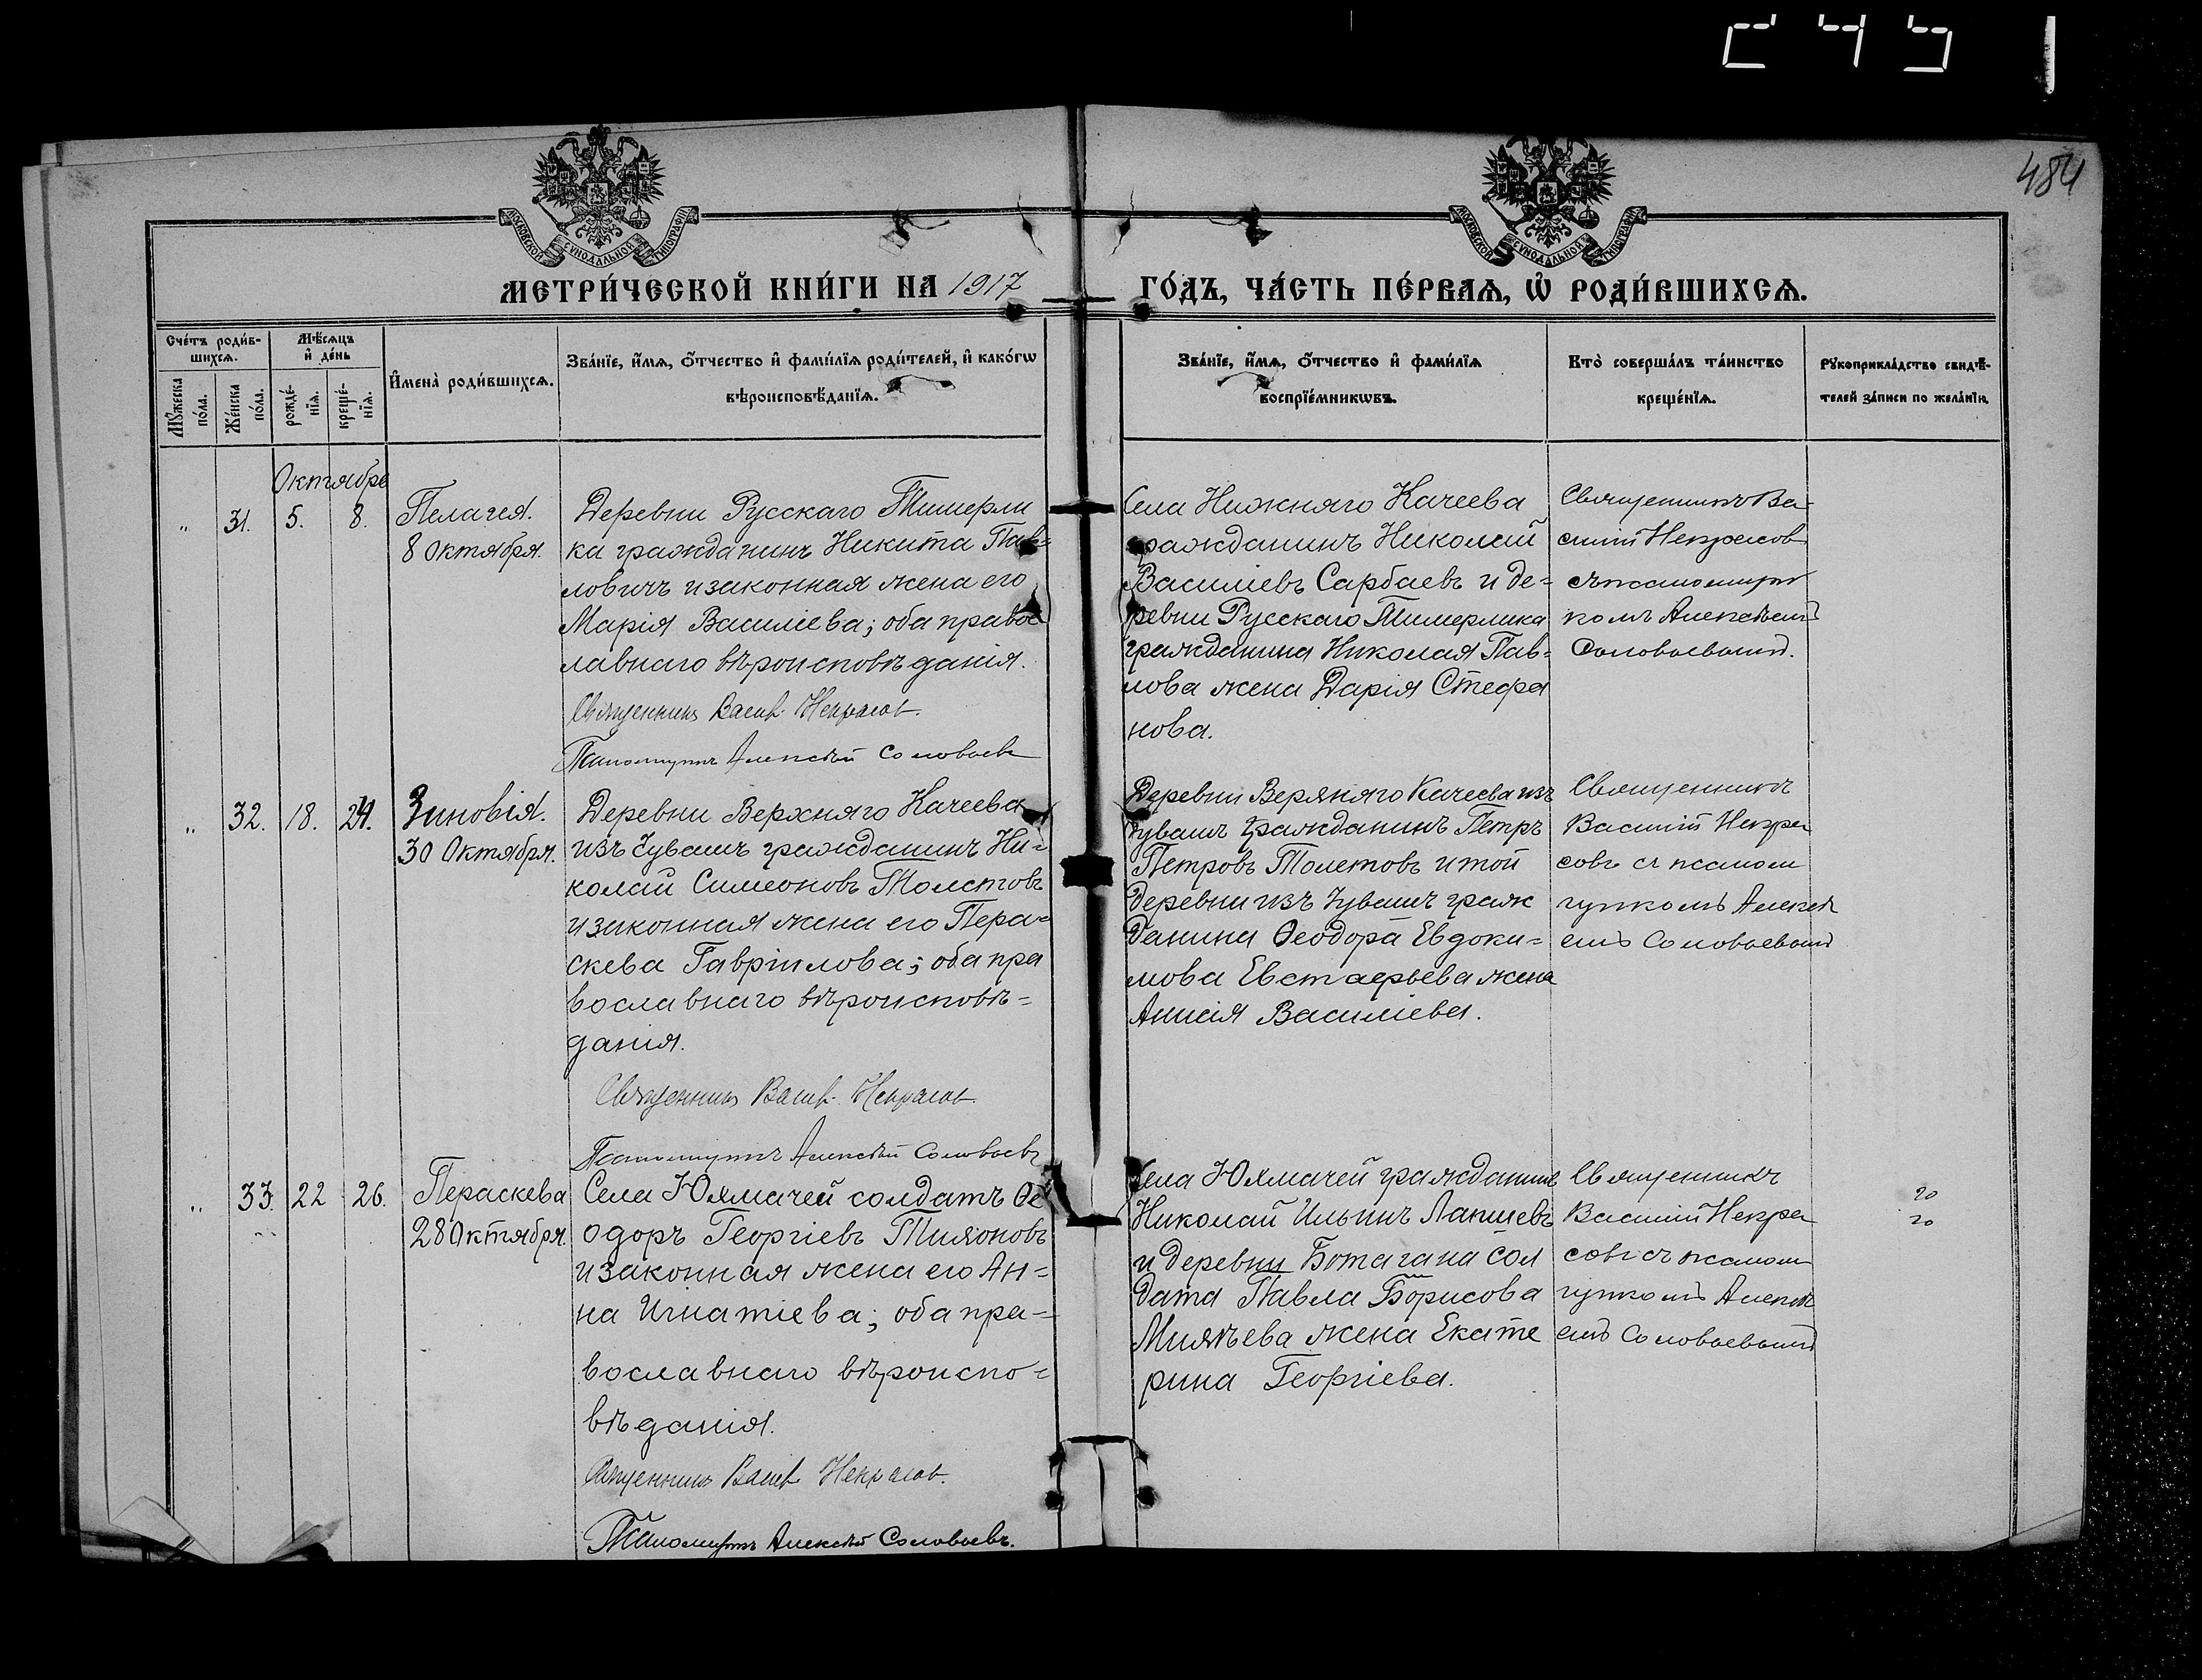 484
МОСКОВСКОЙ СѴНОДАЛЬНОЙ ТИПОГРАФІИ
МОСКОВСКОЙ СѴНОДАЛЬНОЙ ТИПОГРАФІИ
МЕТРИ́ЧЕСКОЙ КНИ́ГИ НА 1917 ГО́ДЪ, ЧА́СТЬ ПЕ́РВАѦ, Ѡ҆ РОДИ́ВШИХСѦ.
Сче́тъ роди́в-
шихсѧ.
Мꙋ́жеска
по́ла.
Же́нска
по́ла.
Мѣ́сѧцъ
и҆ де́нь
рожде́-
нїѧ.
креще́-
нїѧ.
И҆мена̀ роди́вшихсѧ.
Зва́нїе, и҆́мѧ, ѻ҆́тчество и҆ фами́лїѧ роди́телей, и҆ како́гѡ
вѣроисповѣ́данїѧ.
Зва́нїе, и҆́мѧ, ѻ҆́тчество и҆ фами́лїѧ
воспрїе́мникѡвъ.
Кто̀ соверша́лъ та́инство
креще́нїѧ.
Рꙋкоприкла́дство свидѣ́-
телей за́писи по жела́нїю.
Октябре
„ 31. 5. 8.
Пелагея.
8 Октября.
Деревни Русскаго Тимерли
ка гражданинъ Никита Пав=
ловичъ и законная жена его
Марія Василіева; оба правос
лавнаго вѣроисповѣданія.
Священникъ Васил. Некрасовъ.
Псаломщикъ Алексѣй Соловьевъ
Села Нижняго Качеева
гражданинъ Николай
Василіевъ Сарбаевъ и де=
ревни Русскаго Тимерлика
гражданина Николая Пав=
лова жена Дарія Стефа
нова.
Священникъ Ва
силій Некрасов
съ псаломщи
комъ Алексѣемъ
Соловьевымъ.
„ 32. 18. 24.
Зиновія.
30 Октября.
Деревни Верхняго Качеева
изъ Чувашъ гражданинъ Ни=
колай Симеоновъ Толстовъ
и законная жена его Пера=
скева Гавріилова; оба пра
вославнаго вѣроисповѣ=
данія.
Священникъ Васил. Некрасов.
Псаломщикъ Алексѣй Соловьевъ
Деревни Верхняго Качеева изъ
Чувашъ гражданинъ Петръ
Петровъ Толстовъ и той
деревни изъ Чувашъ граж
данина Ѳеодора Евдоки=
мова Евстафьева жена
Анисія Василіева.
Священникъ
Василій Некра
совъ съ псалом
щикомъ Алексѣ
емъ Соловьевымъ
„ 33. 22 26.
Пераскева
28 Октября.
Села Юхмачей солдатъ Ѳе
одоръ Георгіевъ Тихоновъ
и законная жена его Ан=
на Игнатіева; оба пра=
вославнаго вѣроиспо=
вѣданія.
Священникъ Васил. Некрасов.
Псаломщикъ Алексѣй Соловьевъ.
Села Юхмачей гражданинъ
Николай Ильинъ Лапшевъ
и деревни Ботагана сол
дата Павла Борисова
Михѣева жена Екате
рина Георгіева.
Священникъ
Василій Некра
совъ съ псалом
щикомъ Алексѣ
емъ Соловьевымъ
20
20